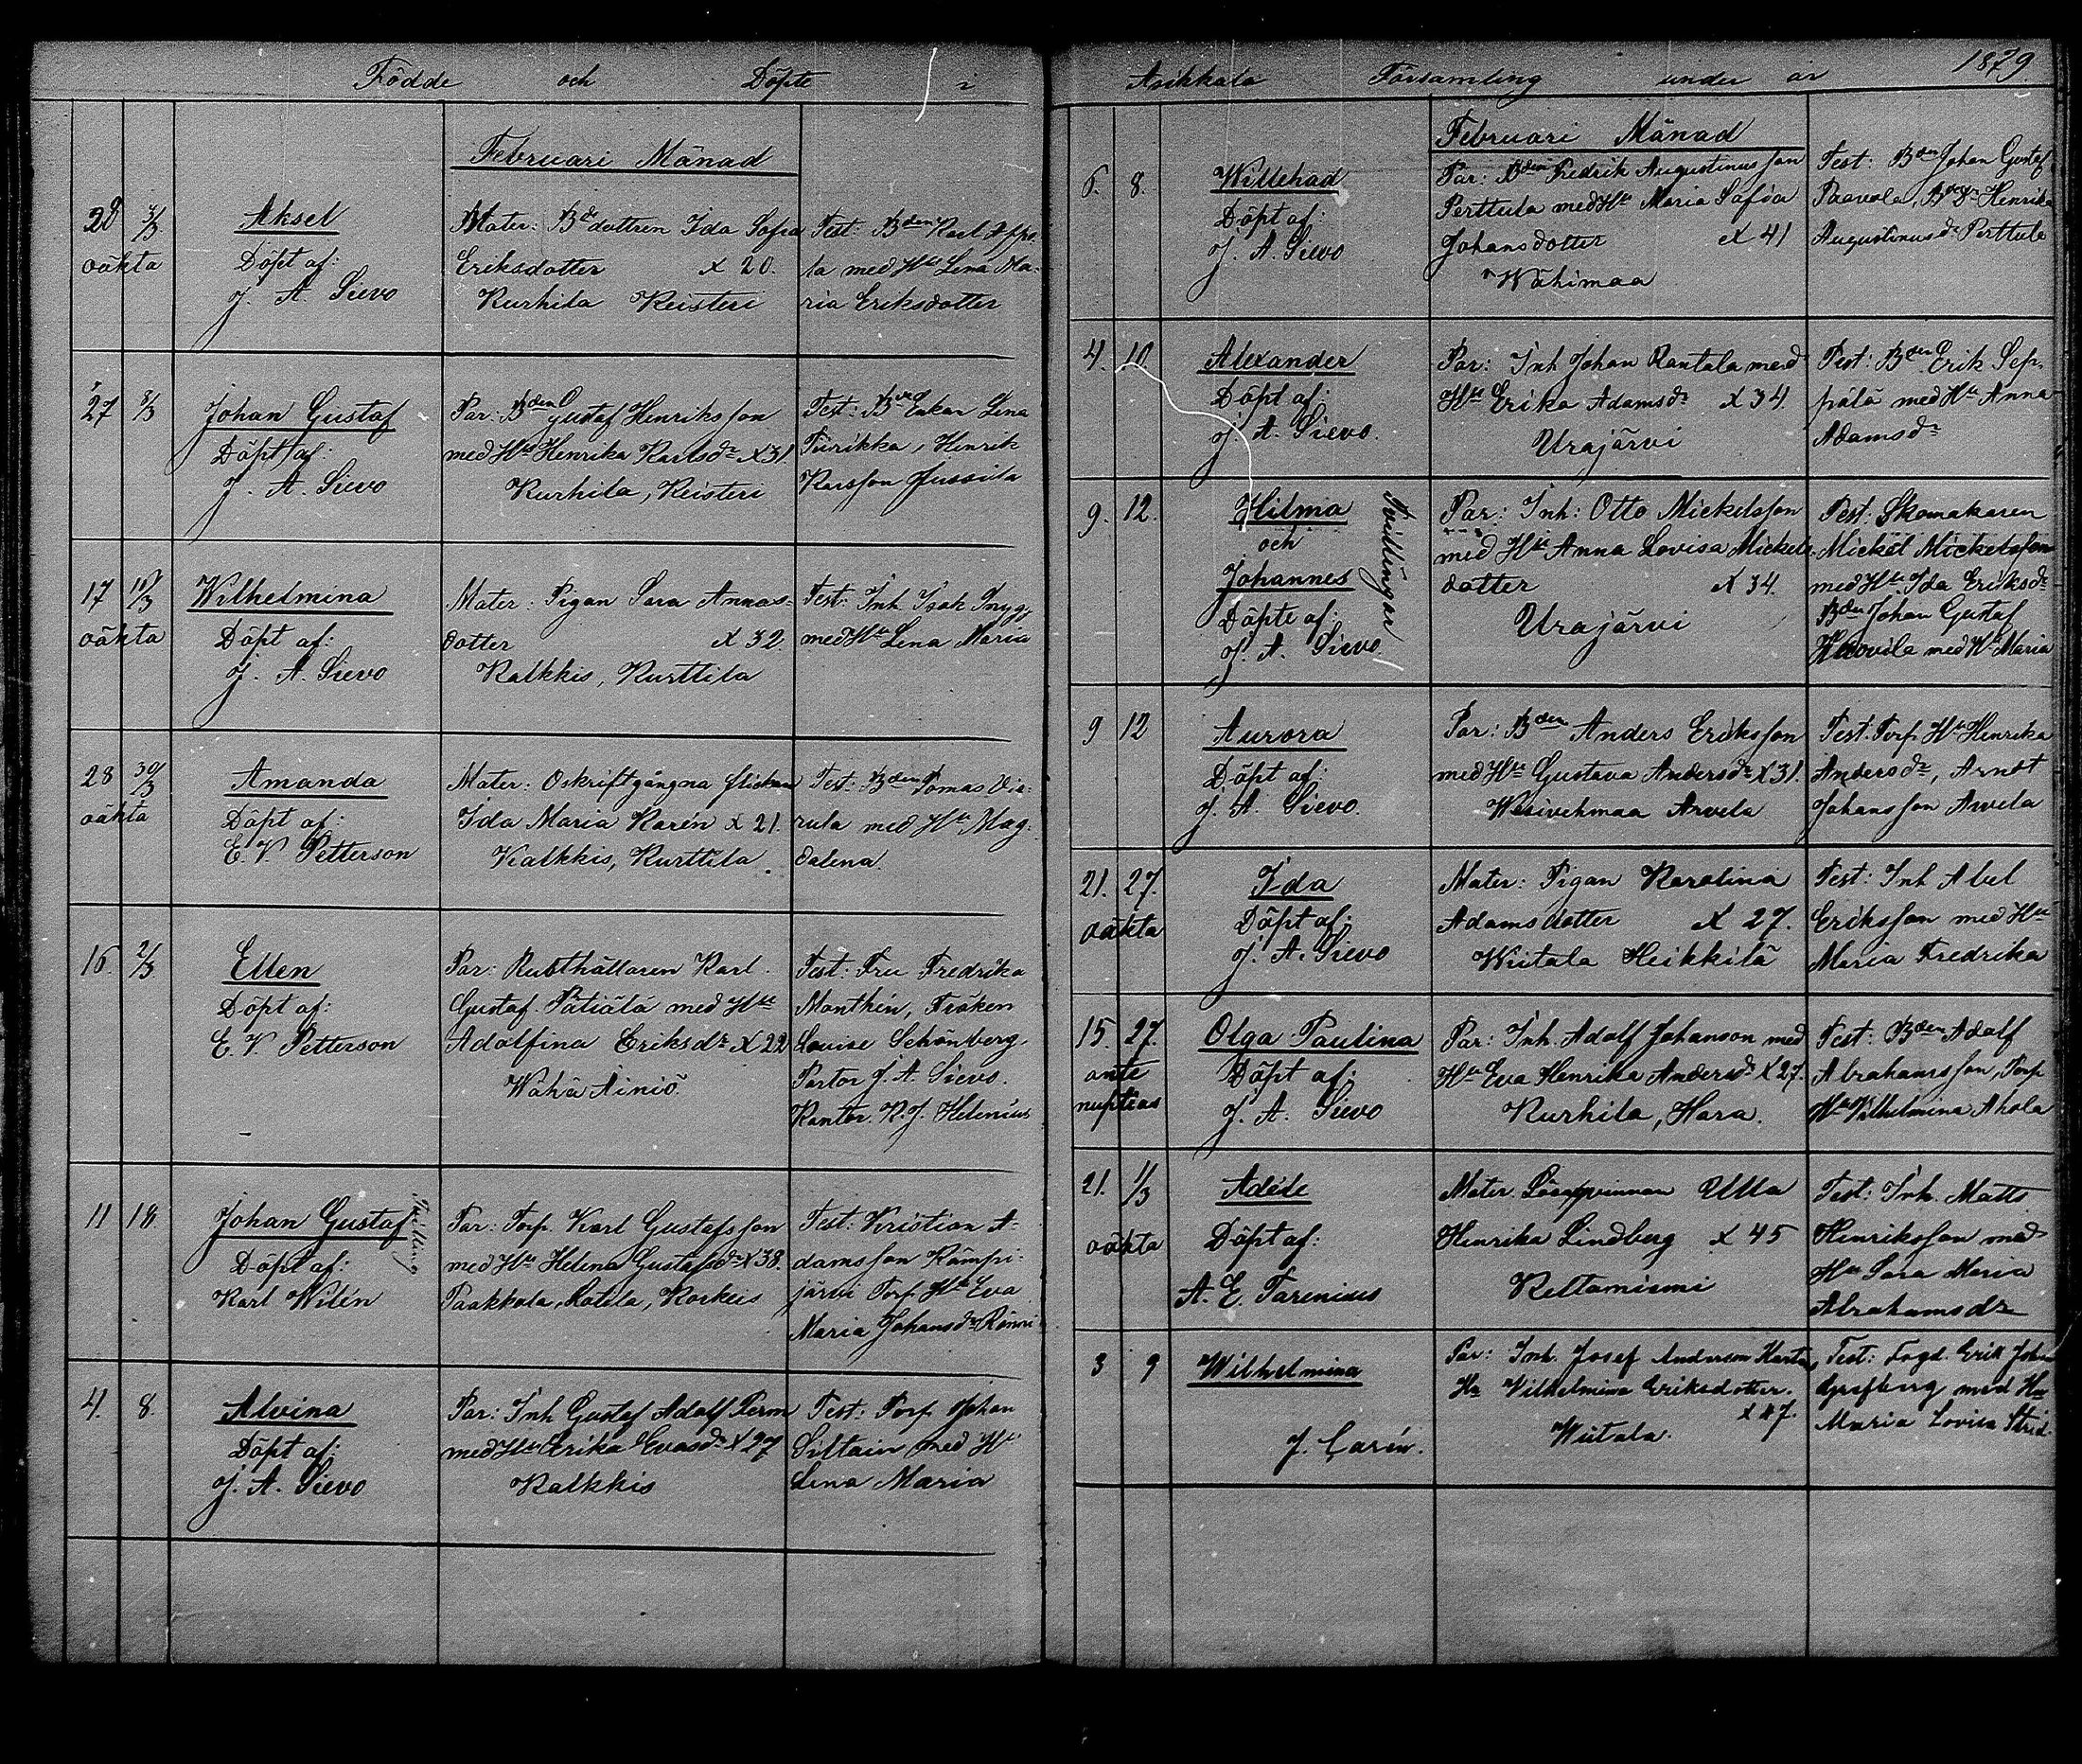 Födde och Döpte i
Februari Månad
28 3/3 Aksel
oäkta Döpt af:
J. A. Sievo
Mater: Bde dottren Ida Sofia
Eriksdotter x 20.
Kurhila Keisteri
Test: Bden Karl
la med Hu Lena Ma-
ria Eriksdotter
27 8/3 Johan Gustaf
Döpt af:
J. A. Sievo
Par: Bden Gustaf Henriksson
med Hu Henrika Karlsdr x 31.
Kurhila, Keisteri
Test: Enkan Lena
Tiirikka, Henrik
Karsson Jussila
17 10/3 Wilhelmina
oäkta Döpt af:
J. A. Sievo
Mater: Pigan Sara Annas-
dotter x 32.
Kalkkis, Kurttila
Test: Inh. Isak Snygg
med Hu Lena Maria
28 30/3 Amanda
oäkta Döpt af:
E. V. Petterson
Mater: Oskriftgångna flickan
Ida Maria Karén x 21.
Kalkkis, Kurttila
Test: Bden Tomas Vie-
rula med Hu Mag-
dalena.
16. 2/3 Ellen
Döpt af:
E. V. Petterson
Par: Rusthållaren Karl
Gustaf Pätiälä med Hu
Adolfina Eriksdr x 22
Wähä Äiniö
Test: Fru Fredrika
Manthén, Fröken
Louise Schönberg,
Pastor J. A. Sievo.
Kantor. K. J. Helenius
11 18. Johan Gustaf Trilling
Döpt af:
Karl Wilén
Par: Torp. Karl Gustafsson
med Hu Helena Gustafsdr x 38.
Paakkola, Katila, Korkeis
Test: Kristian A-
damsson Kämpi-
järvi Torp. Hu Eva
Maria Johansdr Rönni
4. 8. Alvina
Döpt af:
J. A. Sievo
Par: Inh. Gustaf Adolf Perm
med Hu Erika Evasdr x 27
Kalkkis
Test: Torp. Johan
Siltain med Hu
Lena Maria
Asikkala Församling under år 1879.
Februari Månad
6. 8. Willehad
Döpt af:
J. A. Sievo
Par: Bden Fredrik Augustinusson
Perttula med Hu Maria Sofia
Johansdotter x 41
Wähimaa
Test: Bden Johan Gustaf
Paavola, Bdedr Henrika
Augustinusdr Perttula
4. 10 Alexander
Döpt af:
J. A. Sievo.
Par: Inh Johan Rantala med
Hu Erika Adamsdr x 34.
Urajärvi
Test: Bden Erik Sep-
pälä med Hu Anna
Adamsdr
9. 12. Hilma
och
Johannes
Tvillingar
Döpte af:
J. A. Sievo
Par: Inh: Otto Mickelsson
med Hu Anna Lovisa Mickels-
dotter x 34.
Urajärvi
Test: Skomakaren
Mickel Mickelsson
med Hu Ida Eriksdr
Bden Johan Gustaf
med Hu Maria
9 12 Aurora
Döpt af:
J. A. Sievo.
Par: Bden Anders Eriksson
med Hu Gustava Andersdr x 31.
Wesivehmaa Arvela
Test: Torp. Hu Henrika
Andersdr, Arndt
Johansson Arvela
21. 27. Ida
oäkta Döpt af:
J. A. Sievo
Mater: Pigan Karolina
Adamsdotter x 27.
Wiitala Heikkilä
Test: Inh Abel
Eriksson med Hu
Maria Fredrika
15. 27. Olga Paulina
ante
nuptias
Döpt af:
J. A. Sievo
Par: Inh. Adolf Johanson med
Hu Eva Henrika Andersdr x 27.
Kurhila, Hara.
Test: Bden Adolf
Abrahamsson, Torp
Hu Wilhelmina Ahola
21. 1/3 Adéle
oäkta Döpt af:
A. E. Farenius
Mater. Lösqvinnan Ulla
Henrika Lindberg x 45
Keltaniemi
Test: Inh. Matts
Henriksson med
Hu Sara Maria
Abrahamsdr
3 9 Wilhelmina
J. Carén.
Par: Inh. Josef Anderson
Hu Wilhelmina Eriksdotter.
x 47.
Wiitala.
Test: Fogd. Erik Johan
med Hu
Maria Lovisa Strid.